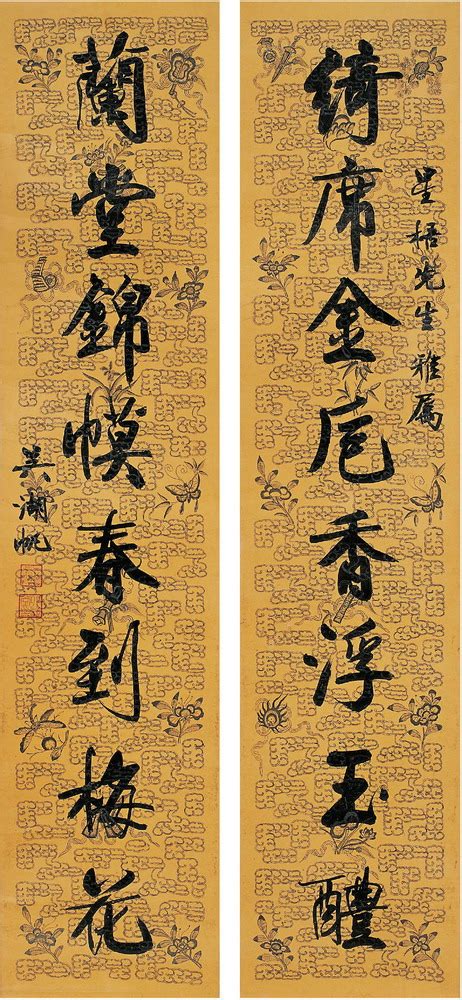 綺席金卮香浮玉醴
星梧先生雅屬
蘭堂錦幙春到梅花
吳湖帆